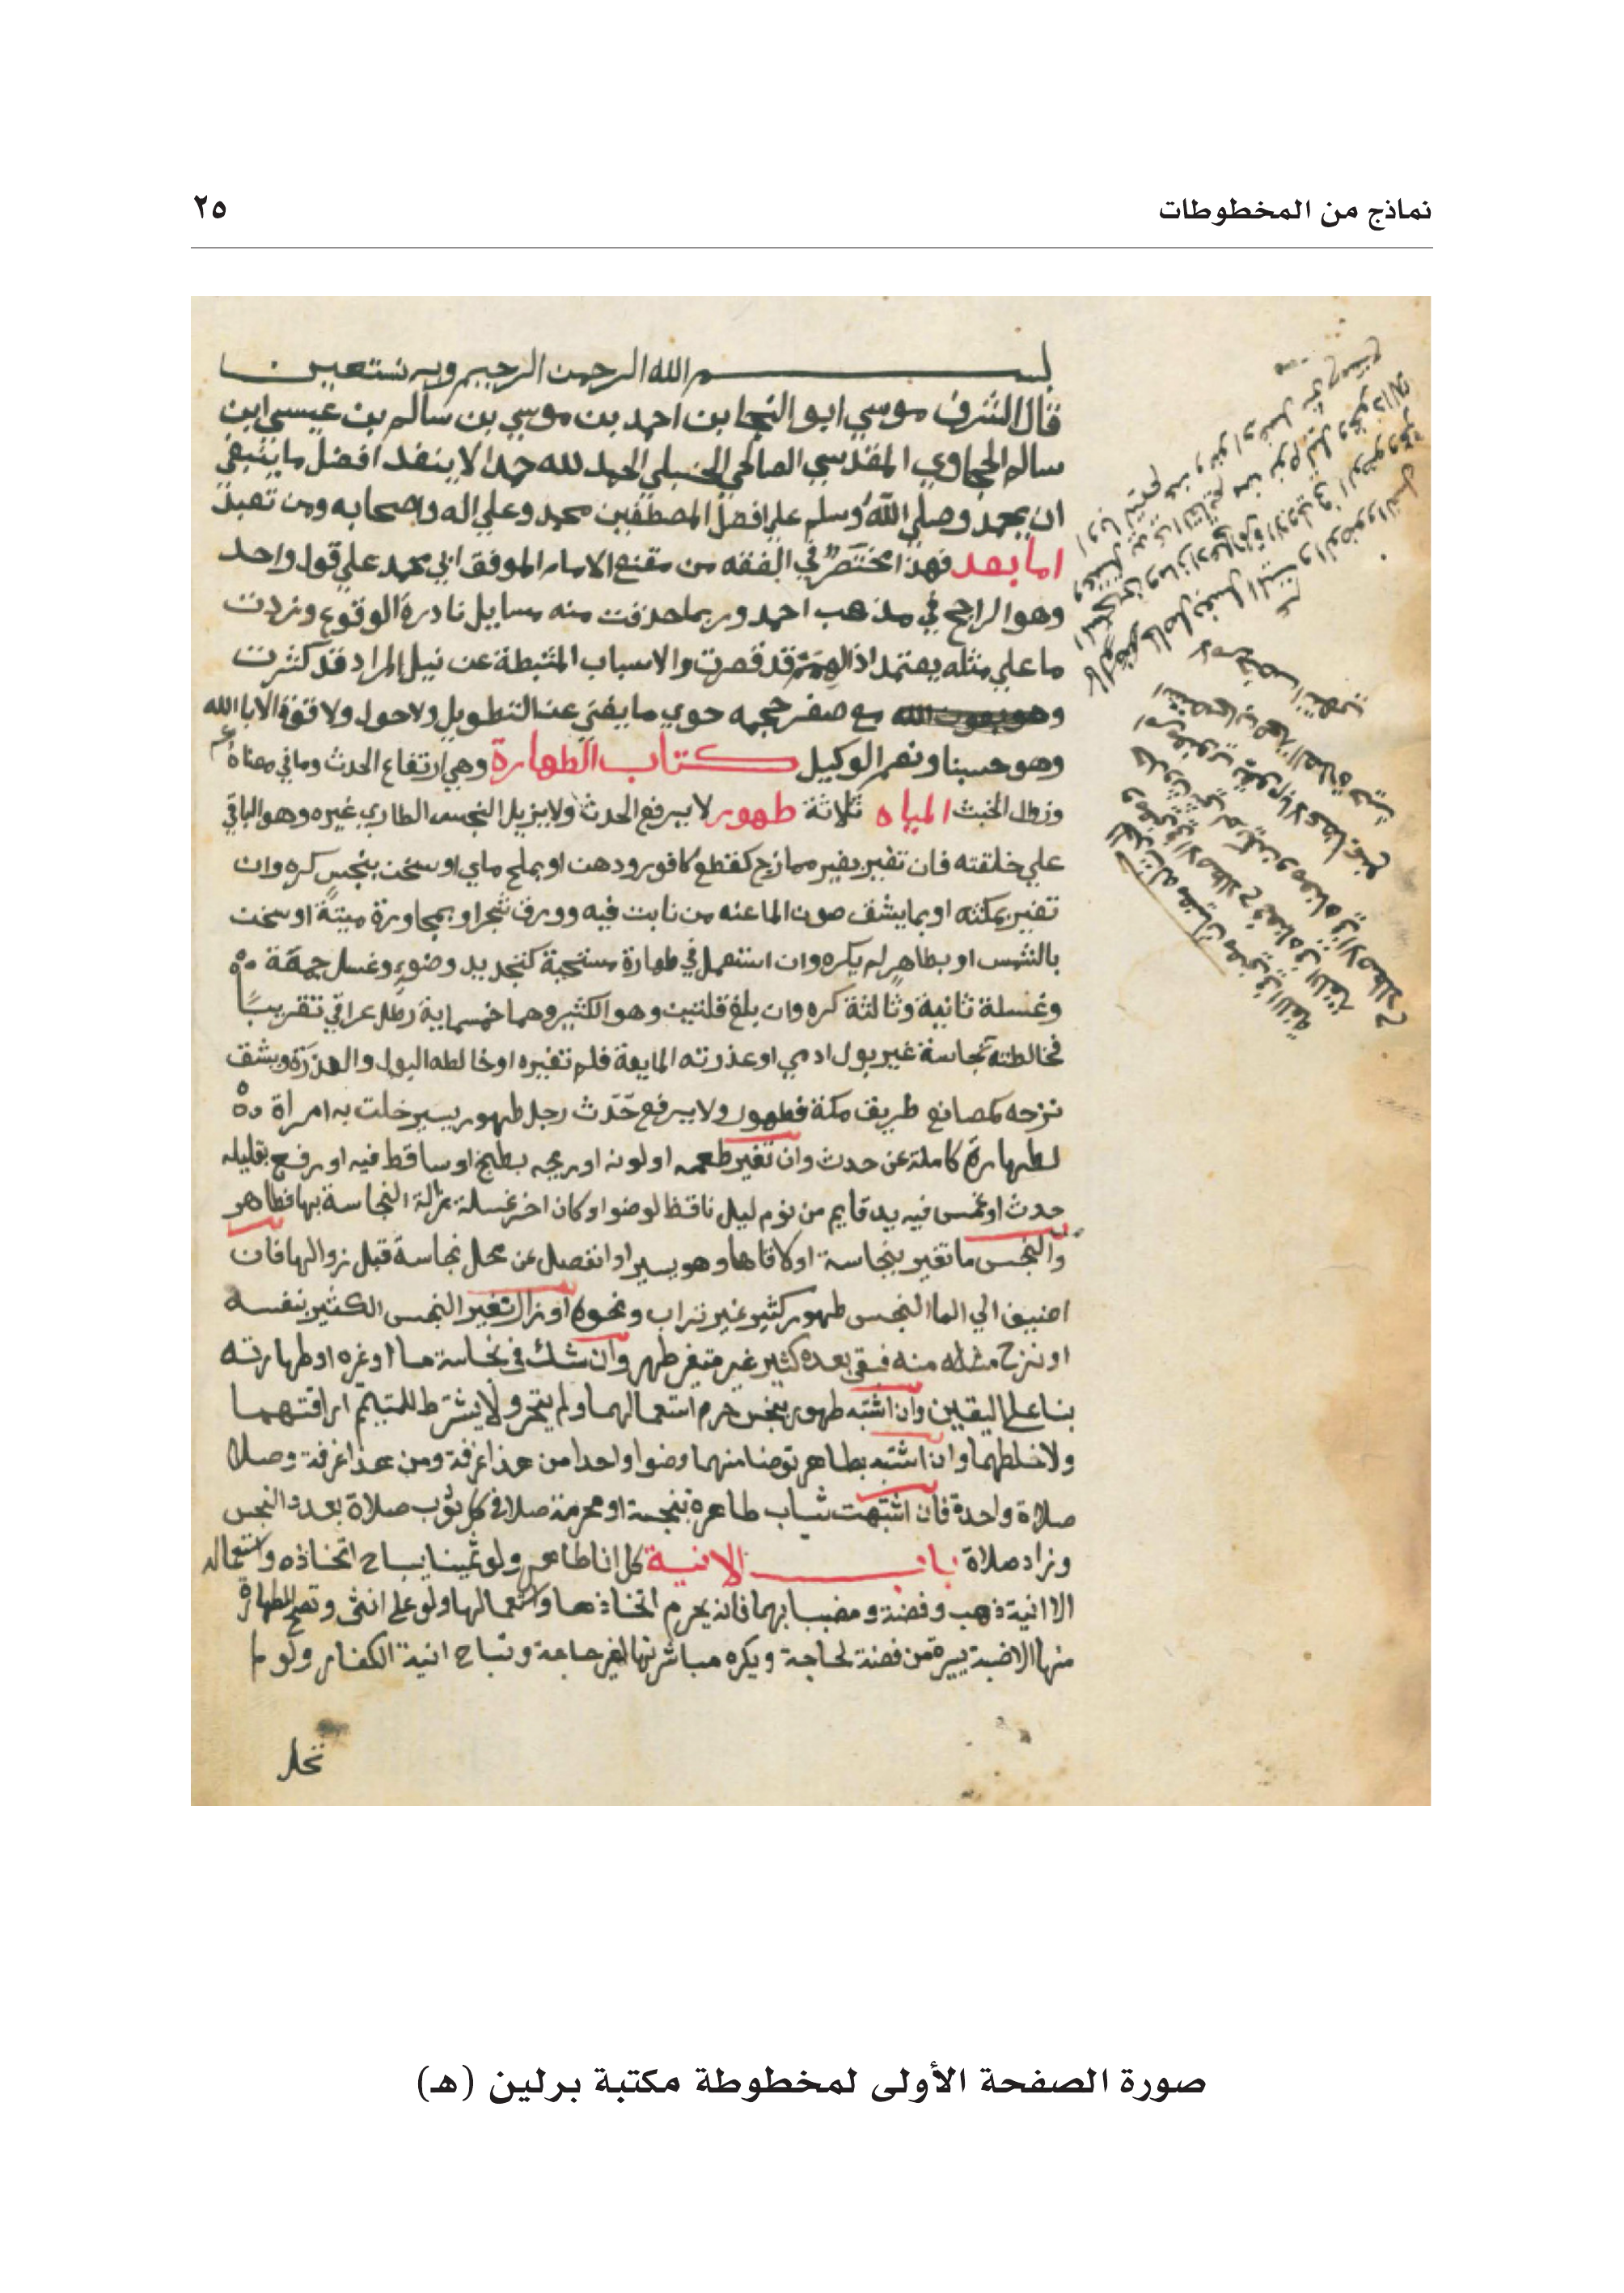 نماذج من المخطوطات
٢٥
بسم الله الرحمن الرحيم وبه نستعين
قال الشرف موسي ابو النجا بن احمد بن موسي بن سالم بن عيسي ابن
سالم الحجاوي المقدسي الصالحي الحنبلي الحمد لله حمدا لا ينفد افضل ما ينبغي
ان يحمد وصلي الله وسلم علي افضل المصطفين محمد وعلي اله واصحابه ومن تعبد
اما بعد فهذا مختصر في الفقه من مقنع الامام الموفق ابي محمد علي قول واحد
وهو الراجح في مذهب احمد وربما حذفت منه مسايل نادرة الوقوع وزدت
ما علي مثله يعتمد اذ الهمم قد قصرت والاسباب المثبطة عن نيل المراد قد كثرت
وهو بعون الله مع صغر حجمه حوي ما يغني عن التطويل ولا حول ولا قوة الا بالله
وهو حسبنا ونعم الوكيل كتاب الطهارة وهي ارتفاع الحدث وما في معناه
وزوال الخبث المياه ثلاثة طهور لا يرفع الحدث ولا يزيل النجس الطاري غيره وهو الباقي
علي خلقته فان تغير بغير ممازج كقطع كافور ودهن او بملح ماي او سخن بنجس كره وان
تغير بمكثه او بما يشق صون الما عنه من نابت فيه وورق شجر او بمجاورة ميتة او سخن
بالشمس او بطاهر لم يكره وان استعمل في طهارة مستحبة كتجديد وضوء وغسل جمعة
وغسلة ثانية وثالثة كره وان بلغ قلتين وهو الكثير وهما خمسماية رطل عراقي تقريبا
فخالطته نجاسة غير بول ادمي او عذرته المايعة فلم تغيره او خالطه البول والعذرة ويشق
نزحه كمصانع طريق مكة فطهور ولا يرفع حدث رجل طهور يسير خلت به امراة
لطهارة كاملة عن حدث وان تغير طعمه او لونه او ريحه بطبخ او ساقط فيه او رفع بقليله
حدث او غمس فيه يد قايم من نوم ليل ناقظ لوضوا او كان اخر غسلة نزالة النجاسة بها فطاهر
والنجس ما تغير بنجاسة او لاقاها وهو يسير او انفصل عن محل نجاسة قبل زوالها فان
اضيف الي الما النجس طهور كثير غير تراب ونحوه او زال تغير النجس الكثير بنفسه
او نزح مثله منه فبقي بعده كثير غير متغير طهر وان شك في نجاسة ما او غره او طهارته
بنا علي اليقين وان اشتبه طهور بنجس حرم استعمالهما ولم يتحر ولا يشترط للتيمم اراقتهما
ولا خلطهما وان اشتبه بطاهر توضا منهما وضوا واحدا من هذا غرفة ومن هذا غرفة وصلا
صلاة واحدة فان اشتبهت ثياب طاهرة بنجسة او محرمة صلا في كل ثوب صلاة بعدد النجس
وزاد صلاة باب الانية كل انا طاهر ولو ثمينا يباح اتخاذه واستعماله
الا انية ذهب وفضة ومضببا بهما فانه يحرم اتخاذها واستعمالها ولو علي انثي وتصح الطهارة
منها الا ضبة يسيرة من فضة لحاجة ويكره مباشرتها لغير حاجة وتباح انية الكفار ولو لم
تحل
صورة الصفحة الأولى لمخطوطة مكتبة برلين (هـ)